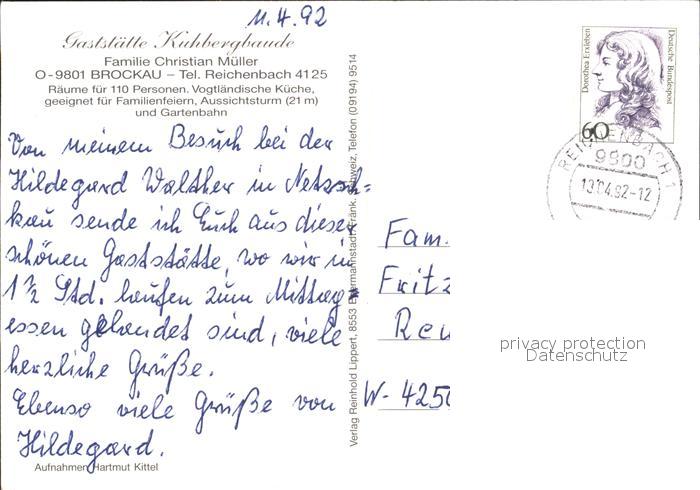 11.4.92
Gaststätte Kuhbergbaude
Familie Christian Müller
O-9801 BROCKAU – Tel. Reichenbach 4125
Räume für 110 Personen. Vogtländische Küche,
geeignet für Familienfeiern, Aussichtsturm (21 m)
und Gartenbahn
Von meinem Besuch bei der
Hildegard Walther in Netzsch=
kau sende ich Euch aus dieser
schönen Gaststätte, wo wir in
1 ½ Std. laufen zum Mittag
essen gelandet sind, viele
herzliche Grüße.
Ebenso viele Grüße von
Hildegard.
Aufnahmen Hartmut Kittel
Verlag Reinhold Lippert, 8553 Ebermannstadt, Fränk. Schweiz, Telefon (09194) 9514
Dorothea Erxleben
Deutsche Bundespost
60
REICHENBACH 1
9800
10.04.92-12
Fam.
Fritz
Reu
W-4250
privacy protection
Datenschutz